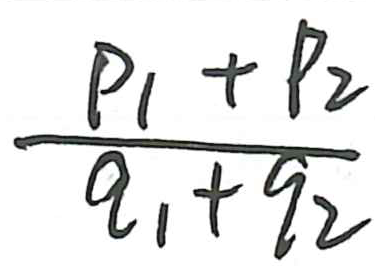 \frac{p_1 + p_2}{q_1 + q_2}